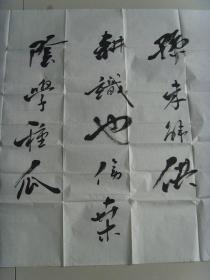 孫未解供
耕織也傍桑
陰學種瓜